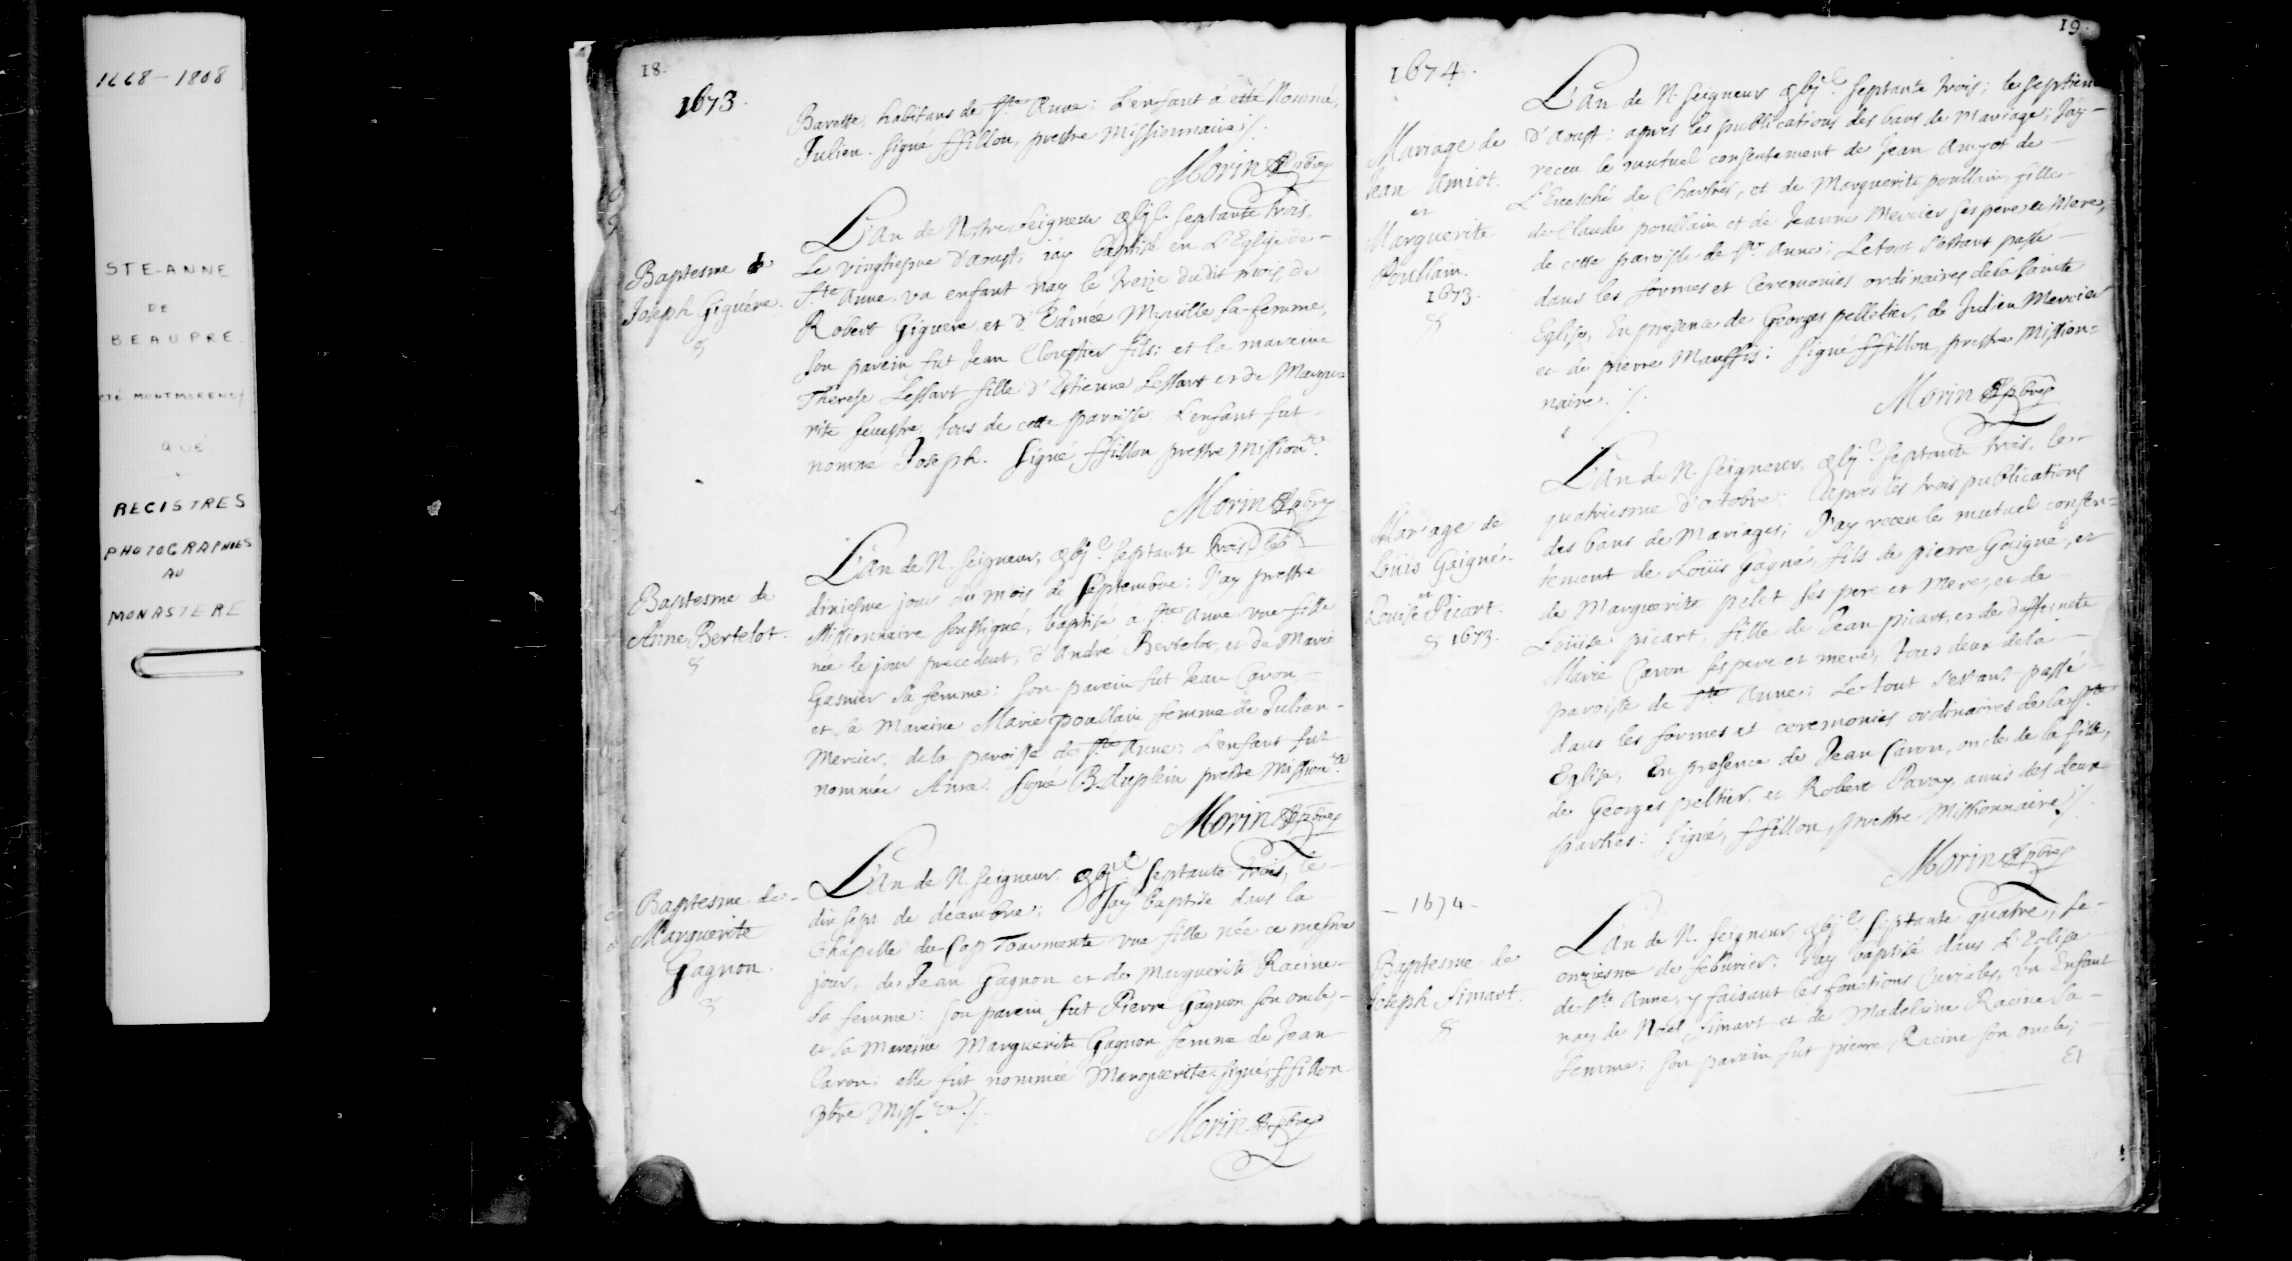 1668-1808
STE-ANNE
DE
BEAUPRE
CTÉ MONTMORENCY
QUÉ
REGISTRES
PHOTOGRAPHIÉS
AU
MONASTERE
18.
1673.
habitans de Ste Anne: L'enfant a esté Nommé,
Julien. signé ffillon, prestre Missionnaire ./.
Morin pbre
Baptesme de
Joseph Giguére.
L'An de Nostre Seigneur septante trois,
Le vingtiesme d'aoust; j'ay baptisé en L'Eglise de
Ste Anne. vn enfant nay le treize dudit mois, de
Robert Giguere et d'Edmée Myville sa femme,
son parein fut Jean Cloustier fils; et la mareine
Therese Lessart fille d'Estienne Lessart et de Margue
rite seuestre, tous de cette parroisse. L'enfant fut
nommé Joseph. signé ffillon prestre Missionre.
Morin pbre
Baptesme de
Anne Bertelot.
L'An de N. Seigneur, septante trois, le
dixiesme jour du mois de septembre: J'ay prestre
Missionnaire soussigné, baptisé a Ste Anne vne fille
née le jour precedent, d'André Bertelot, et de Marie
Gasnier sa femme: son parein fut Jean Caron
et sa Mareine Marie poullain femme de Julien
Mercier, de la paroisse de Ste Anne: L'enfant fut
nommée Anne. signé prestre Missionre.
Morin pbre
Baptesme de
Marguerite
Gagnon.
L'An de N. Seigneur septante trois, le
dix sept de decembre; J'ay baptisé dans la
Chapelle du Cap Tourmente vne fille née ce mesme
jour, de Jean Gagnon et de Marguerite Racine
sa femme: son parein fut Pierre Gagnon son oncle,
et sa Mareine Marguerite Gagnon femme de Jean
Caron: elle fut nommée Marguerite. signé ffillon
pbre Missre ./.
Morin pbre
19.
1674.
Mariage de
Jean Amiot.
et
Marguerite
Poullain.
1673.
L'An de N. Seigneur septante trois; le septiem
d'Aoust: apres les publications des bans de Mariage; J'ay
receu le mutuel consentement de Jean Amyot de
L'Euesché de Chartres, et de Marguerite poullain fille
de Claude poullain et de Jeanne Mercier ses pere et Mere,
de cette paroisse de Ste Anne; Le tout s'estant passé
dans les formes et Ceremonies ordinaires de la sainte
Eglise, En presence de Georges pelletier, de Julien Mercier
et de pierre Mauffis: signé ffillon prestre Mission=
naire ./.
Morin pbre
Mariage de
Louis Gaigné
et
Louise Picart.
1673.
L'An de N. Seigneur, septante trois, le
quatriesme d'octobre: Apres les trois publications
des bans de Mariages; J'ay receu le mutuel consen=
tement de Loüis Gagné, fils de pierre Gaigné, et
de Marguerite pelet ses pere et Mere, et de
Loüise picart, fille de Jean picart, et de deffuncte
Marie Caron ses pere et mere, tous deux de la
paroisse de Ste Anne; Le tout s'estant passé
dans les formes et ceremonies ordinaires de la Ste
Eglise, En presence de Jean Caron, oncle de la fille,
de Georges peltier, et Robert Paray amis des deux
parties: signé, ffillon, prestre Missionnaire ./.
Morin pbre
- 1674 -
Baptesme de
Joseph Simart.
L'An de N. Seigneur septante quatre, le
onziesme de feburier: J'ay baptisé dans L'Eglise
de Ste Anne, y faisant les fonctions Curiales, vn Enfant
nay de Noël Simart et de Madeleine Racine sa
femme; son parein fut pierre Racine son oncle;
Et